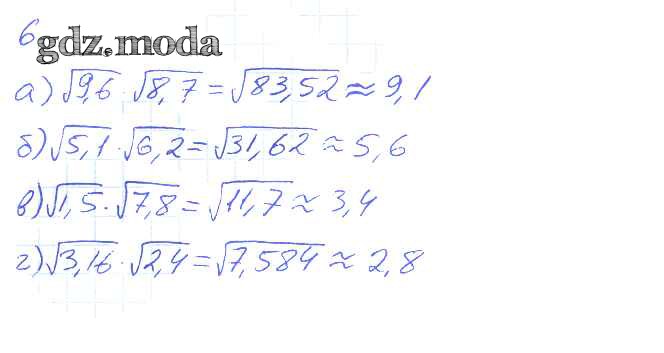 6
gdz.moda
а) √9,6 · √8,7 = √83,52 ≈ 9,1
б) √5,1 · √6,2 = √31,62 ≈ 5,6
в) √1,5 · √7,8 = √11,7 ≈ 3,4
г) √3,16 · √2,4 = √7,584 ≈ 2,8